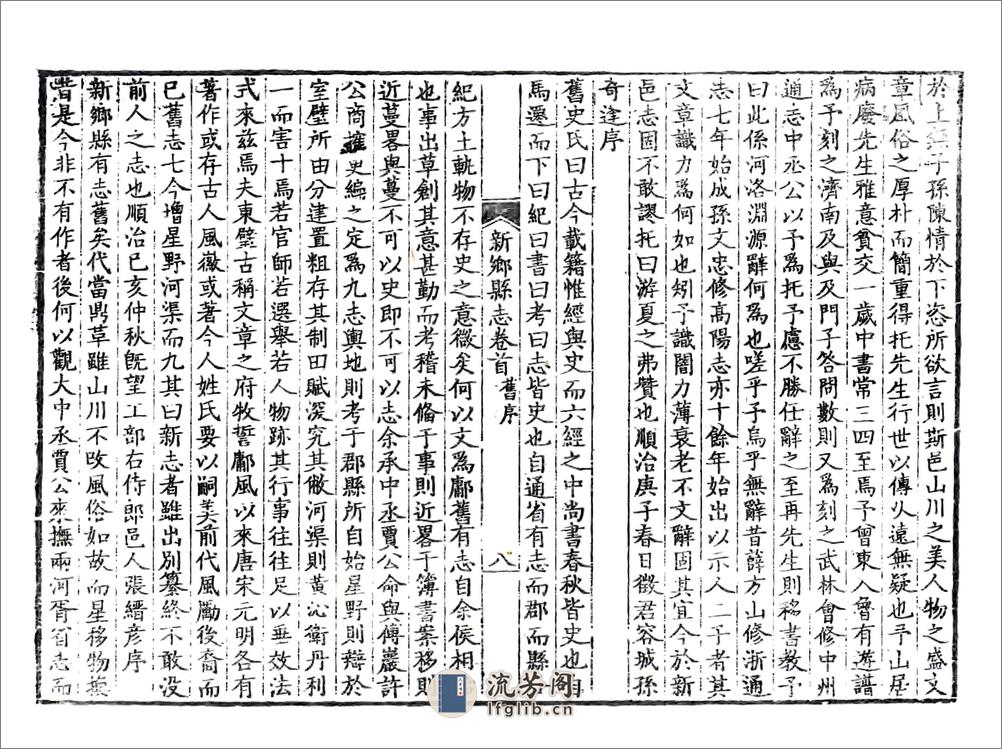 於上經子孫陳情於下恣所欲言則斯邑山川之美人物之盛文
章風俗之厚朴而簡重得托先生行世以傳久遠無疑也予山居
病廢先生雅意貧交一歲中書常三四至焉予曾東入魯有遊譜
為予刻之濟南及與及門子答問數則又為刻之武林會修中州
通志中丞公以予為托予慮不勝任辭之至再先生則移書教予
曰此係河洛淵源辭何為也嗟乎予烏乎無辭昔薛方山修浙通
志七年始成孫文忠修高陽志亦十餘年始出以示人二子者其
文章識力為何如也矧予識闇力薄衰老不文辭固其宜今於新
邑志固不敢謬托曰游夏之弗贊也順治庚子春日徵君容城孫
奇逢序
舊史氏曰古今載籍惟經與史而六經之中尚書春秋皆史也自
馬遷而下曰紀曰書曰考曰志皆史也自通省有志而郡而縣
新鄉縣志卷首 舊序 八
紀方土軌物不存史之意微矣何以文為鄘舊有志自余侯相
也事出草創其意甚勤而考稽未備于事則近畧于簿書案移則
近蔓畧與蔓不可以史即不可以志余承中丞賈公命與傅巖許
公商搉史編之定為九志輿地則考于郡縣所自始星野則辯於
室壁所由分建置粗存其制田賦深究其敝河渠則黃沁衛丹利
一而害十焉若官師若選舉若人物跡其行事往往足以垂效法
式來茲焉夫東壁古稱文章之府牧誓鄘風以來唐宋元明各有
著作或存古人風徽或著今人姓氏要以嗣美前代風勵後裔而
已舊志七今增星野河渠而九其曰新志者雖出別纂終不敢沒
前人之志也順治己亥仲秋旣望工部右侍郎邑人張縉彥序
新鄉縣有志舊矣代當鼎草雖山川不改風俗如故而星移物換
昔是今非不有作者後何以觀大中丞賈公來撫兩河胥省志而
流芳阁
lfglib.cn